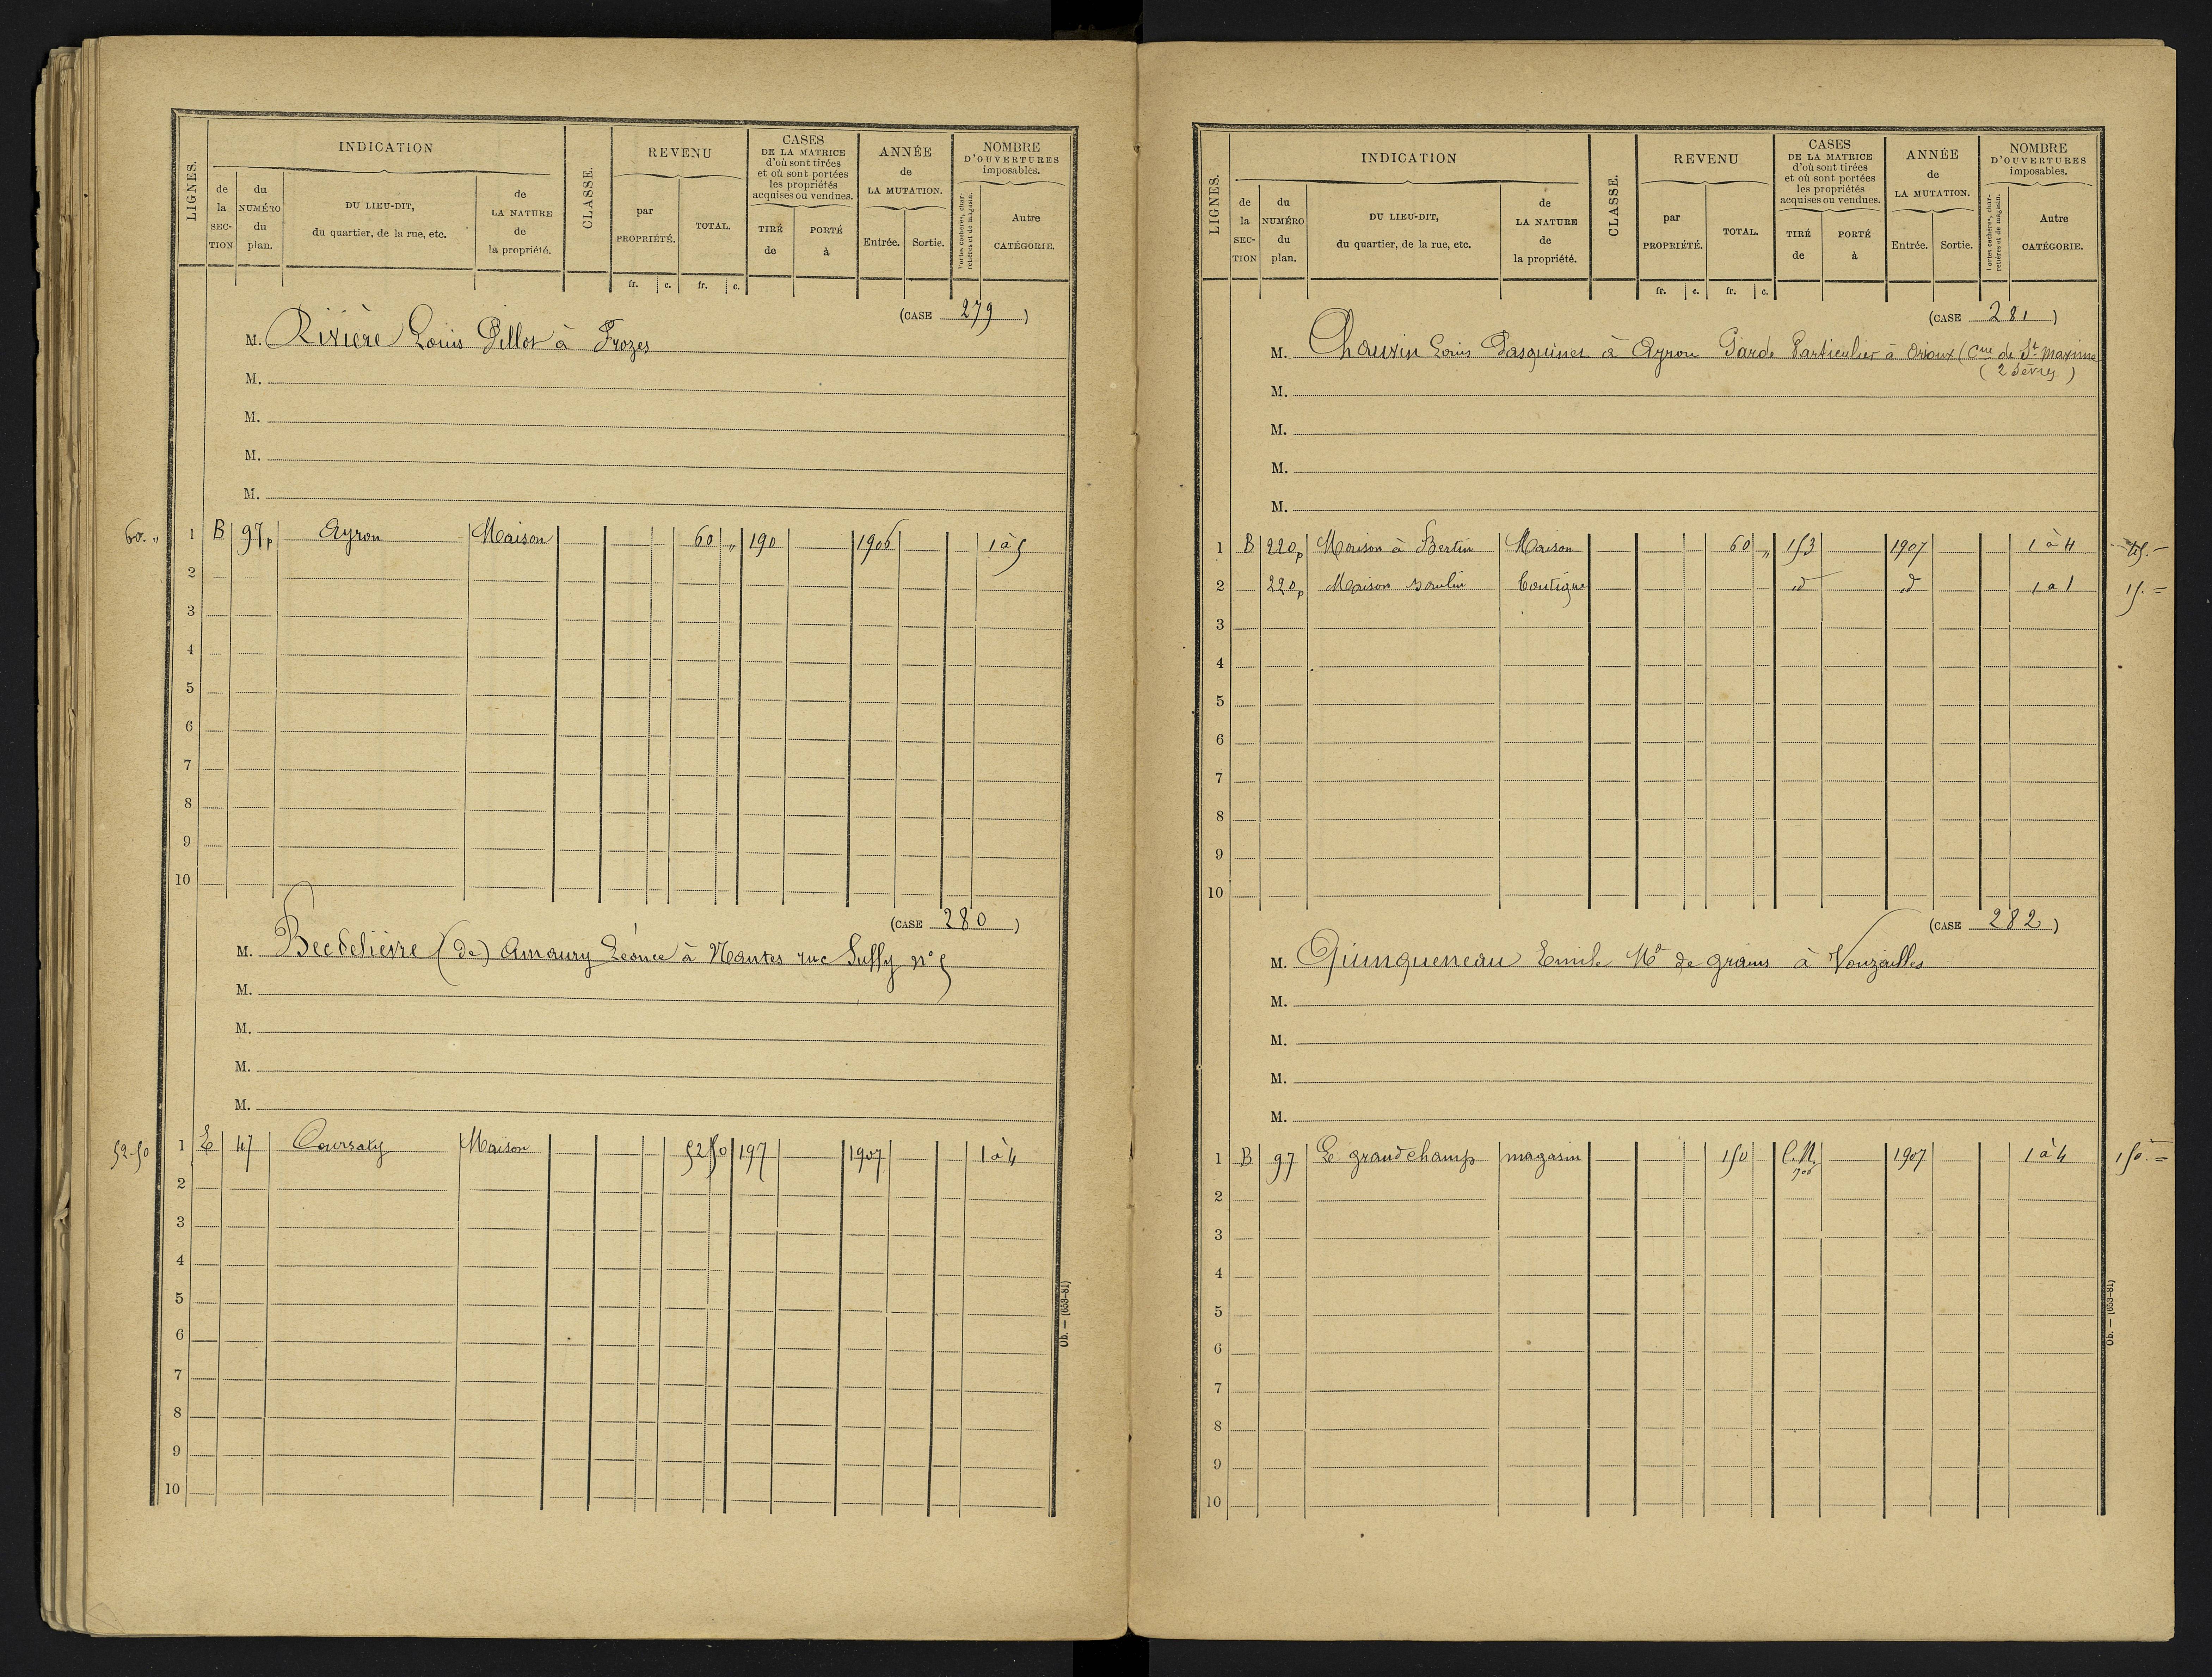 LIGNES.
INDICATION
de la SECTION
du NUMÉRO du plan.
DU LIEU-DIT, du quartier, de la rue, etc.
de LA NATURE de la propriété.
CLASSE.
REVENU
par PROPRIÉTÉ.
TOTAL.
fr. c. fr. c.
CASES DE LA MATRICE d'où sont tirées et où sont portées les propriétés acquises ou vendues.
TIRÉ de
PORTÉ à
ANNÉE de LA MUTATION.
Entrée. Sortie.
NOMBRE D'OUVERTURES imposables.
Portes cochères, charretières et de magasin.
Autre CATÉGORIE.
(CASE 279)
M. Rivière Louis Pillot à Frozes
M.
M.
M.
M.
60. " 1 B 97p Ayron Maison 60 " 190 1906 1 à 5
2
3
4
5
6
7
8
9
10
(CASE 280)
M. Becdelièvre (de) Amaury Léonce à Nantes rue Sully n° 5
M.
M.
M.
M.
52-50 1 E 47 Coursaty Maison 52 50 197 1907 1 à 4
2
3
4
5
6
7
8
9
10
Ob. — (653-81)
LIGNES.
INDICATION
de la SECTION
du NUMÉRO du plan.
DU LIEU-DIT, du quartier, de la rue, etc.
de LA NATURE de la propriété.
CLASSE.
REVENU
par PROPRIÉTÉ.
TOTAL.
fr. c. fr. c.
CASES DE LA MATRICE d'où sont tirées et où sont portées les propriétés acquises ou vendues.
TIRÉ de
PORTÉ à
ANNÉE de LA MUTATION.
Entrée. Sortie.
NOMBRE D'OUVERTURES imposables.
Portes cochères, charretières et de magasin.
Autre CATÉGORIE.
(CASE 281)
M. Chauvin Louis Pasquinet à Ayron Garde Particulier à Orioux (Cne de St Maxime
(2 Sèvres)
M.
M.
M.
M.
1 B 220p Maison à Bertin Maison 60 " 153 1907 1 à 4 45. -
2 220p Maison Boutique id d 1 à 1 15. =
3
4
5
6
7
8
9
10
(CASE 282)
M. Quinqueneau Emile Md de grains à Vouzailles
M.
M.
M.
M.
1 B 97 Le grand champ magasin 150 C.N. 1907 1 à 4 150. =
2
3
4
5
6
7
8
9
10
Ob. — (653-81)